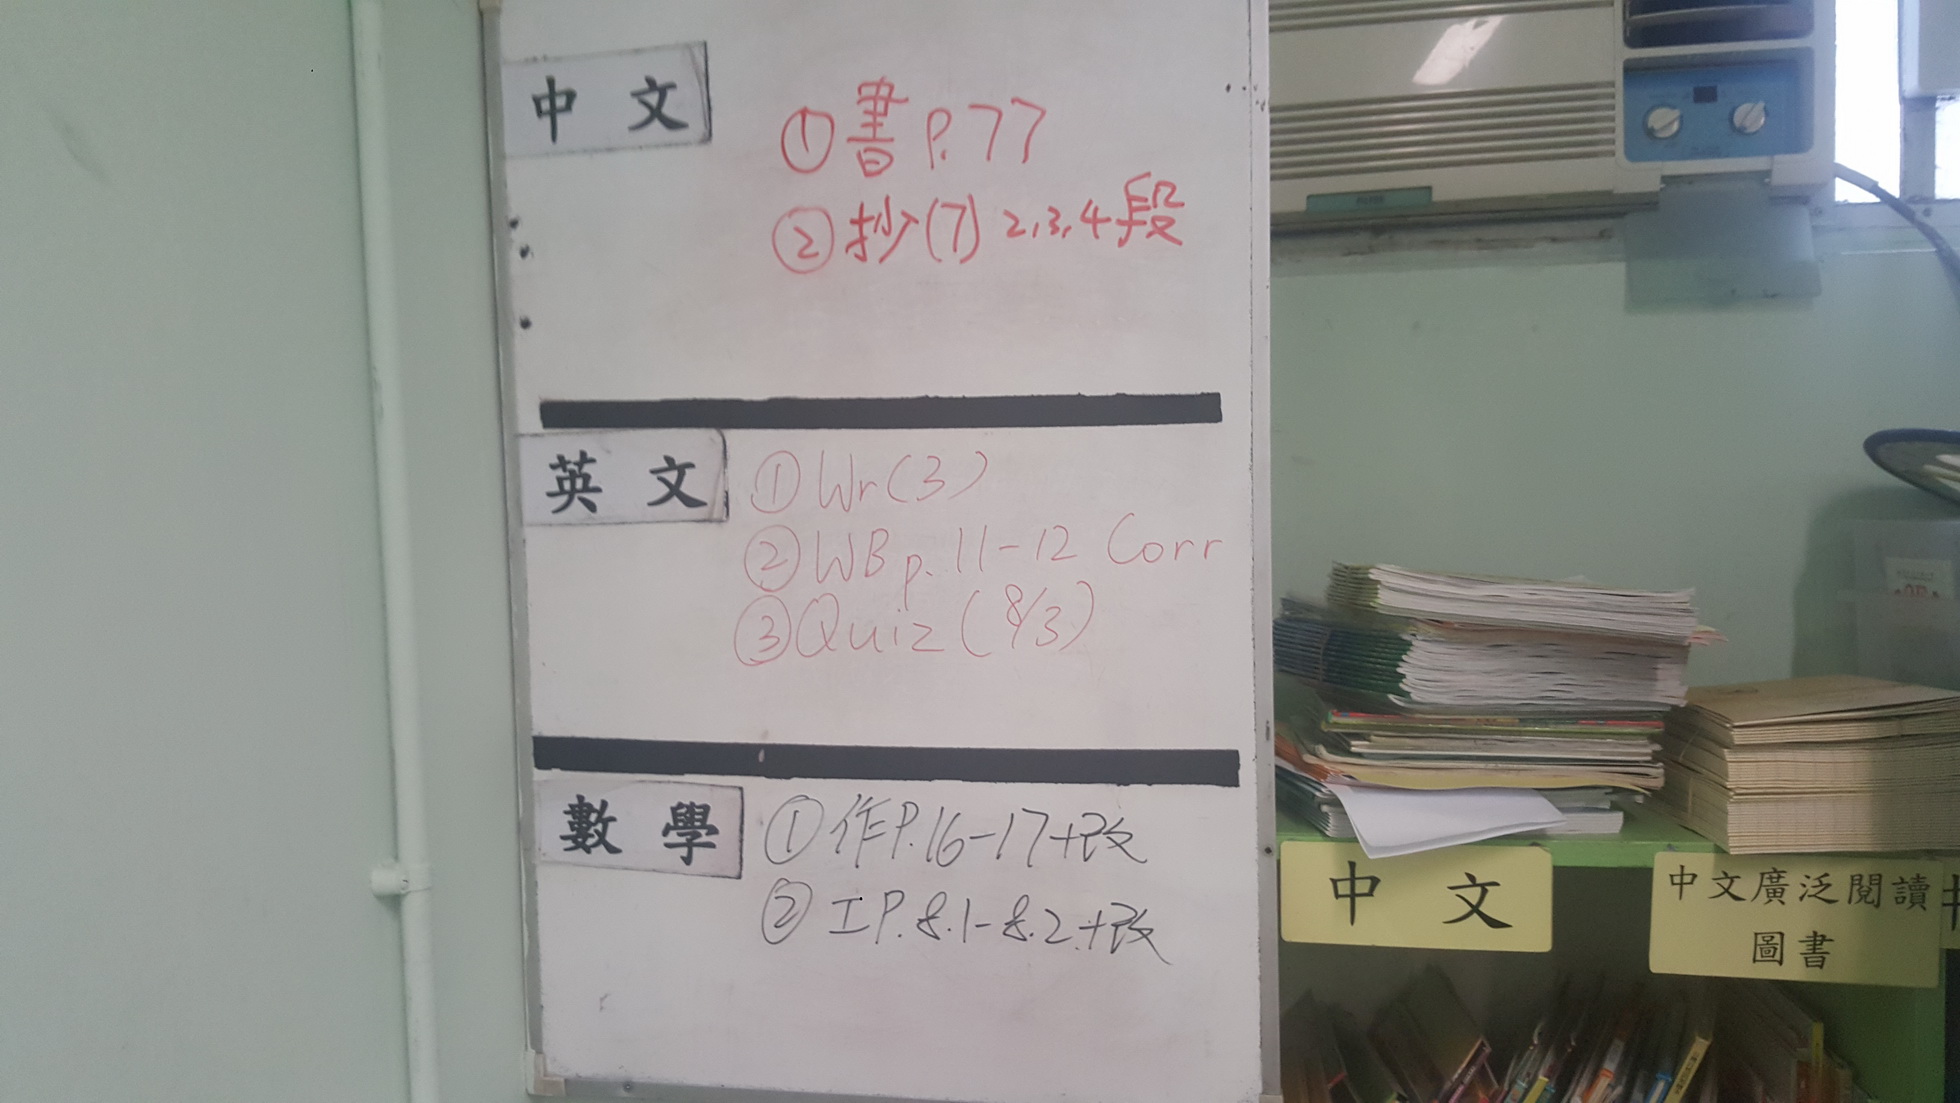 中文
①書P.77
②抄(7) 2,3,4段
英文
①Wr(3)
②WB p.11-12 Corr
③Quiz (8/3)
數學
①作P.16-17+改
②工P.8.1-8.2.+改
中文
中文廣泛閱讀
圖書